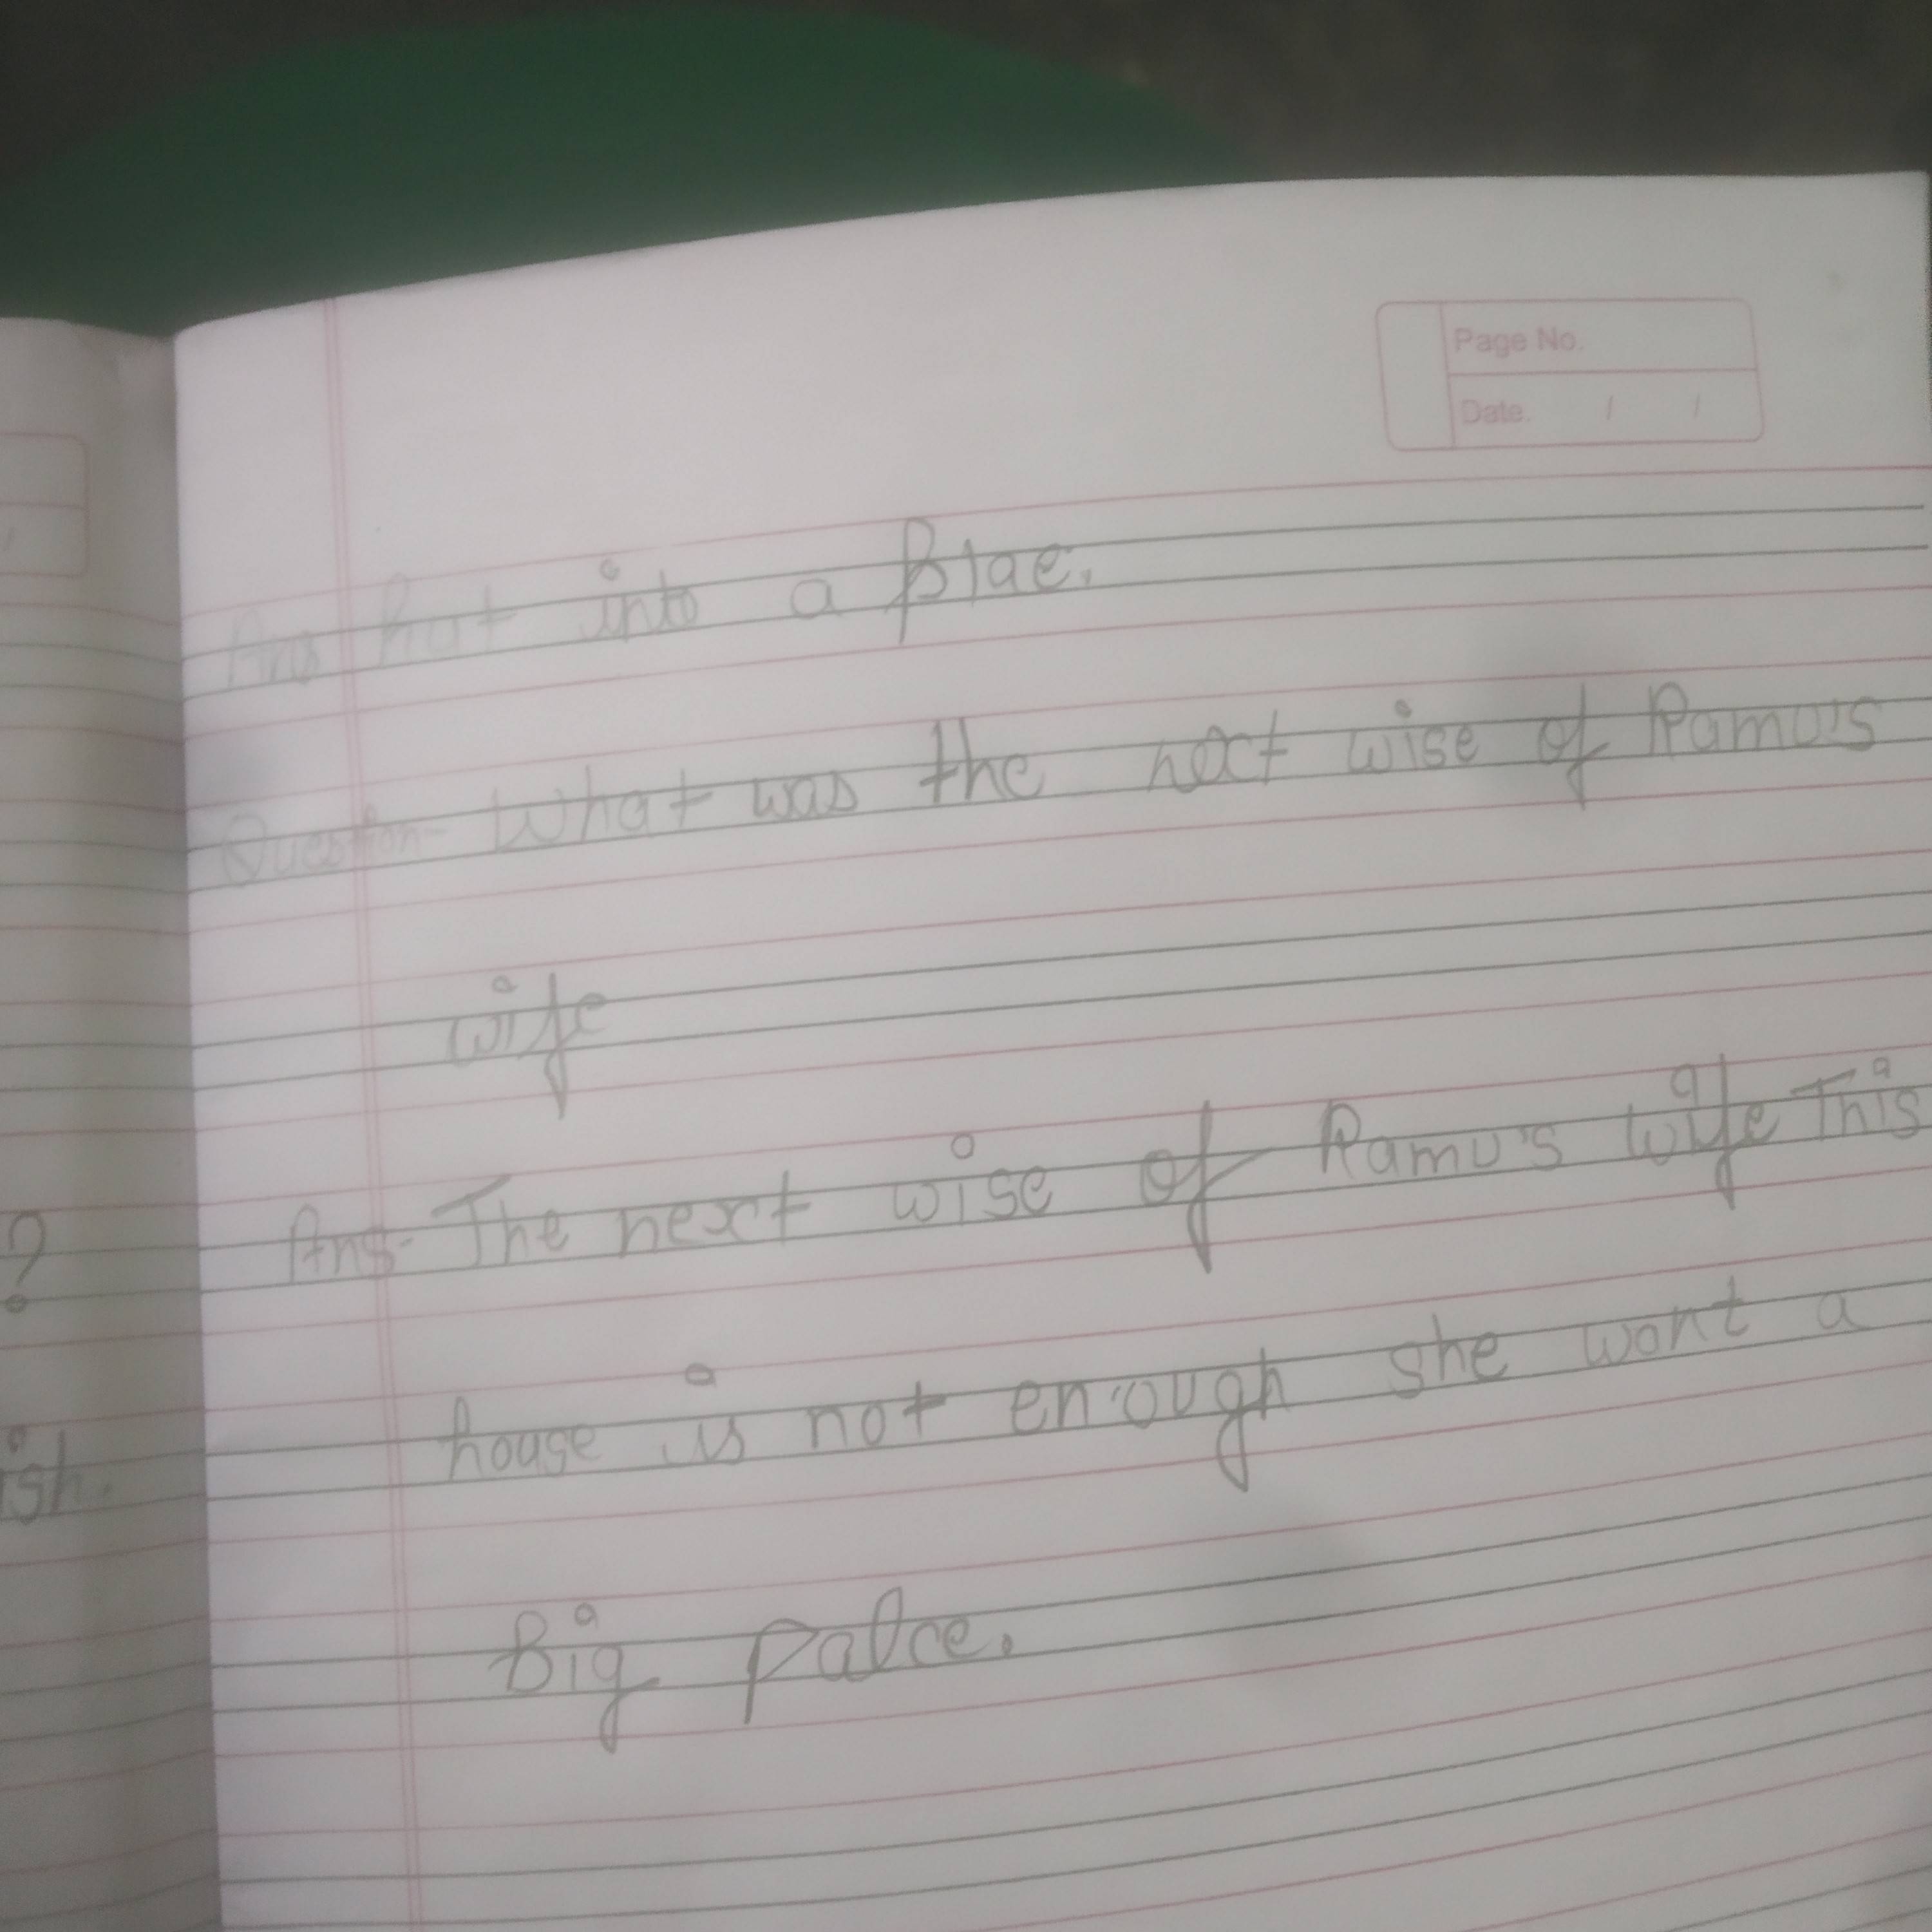 Page No.
Date. / /
Ans hut into a Blae.
Question- What was the next wise of Ramu's
wife
Ans- The next wise of Ramu's wife This
house is not enough she want a
Big palce.
?
ish.